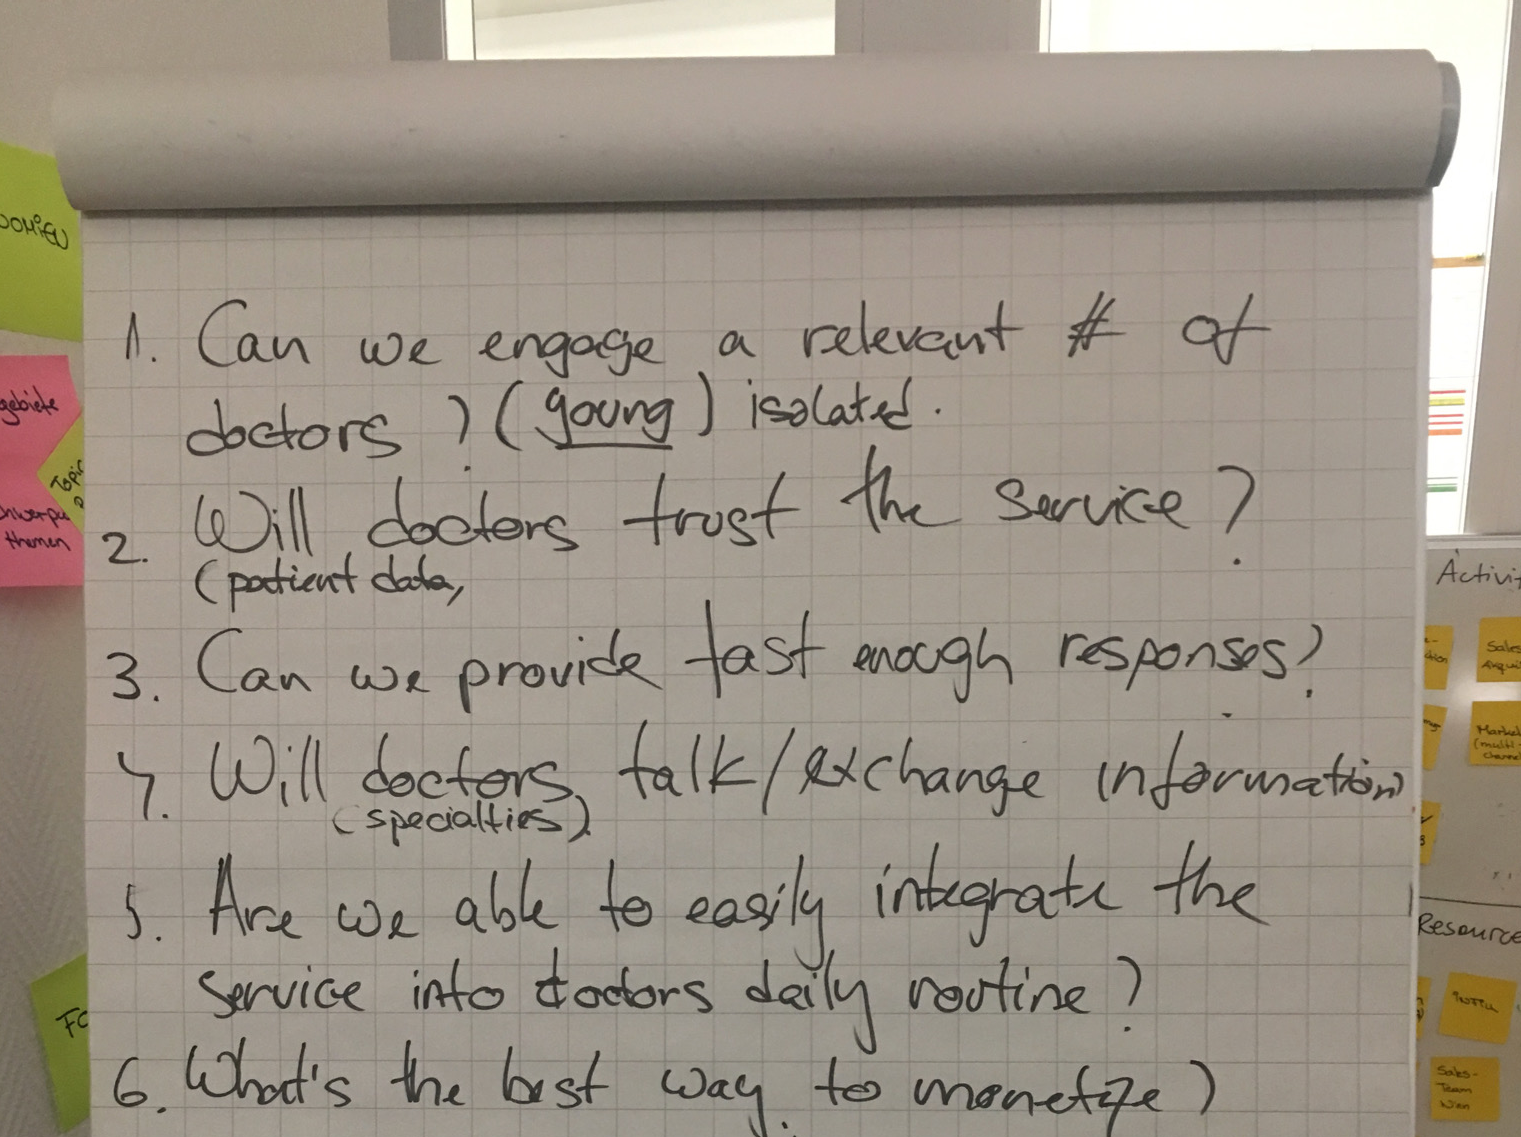 1. Can we engage a relevant # of
doctors? (young) isolated.
2. Will doctors trust the service?
(patient data,
3. Can we provide fast enough responses?
4. Will doctors talk/exchange information
(specialties)
5. Are we able to easily integrate the
service into doctors daily routine?
6. What's the best way to monetize?
gebiete
Topic
themen
Activit
Sales
Market
(multi-
channel
Resource
Sales-
Team
Wien